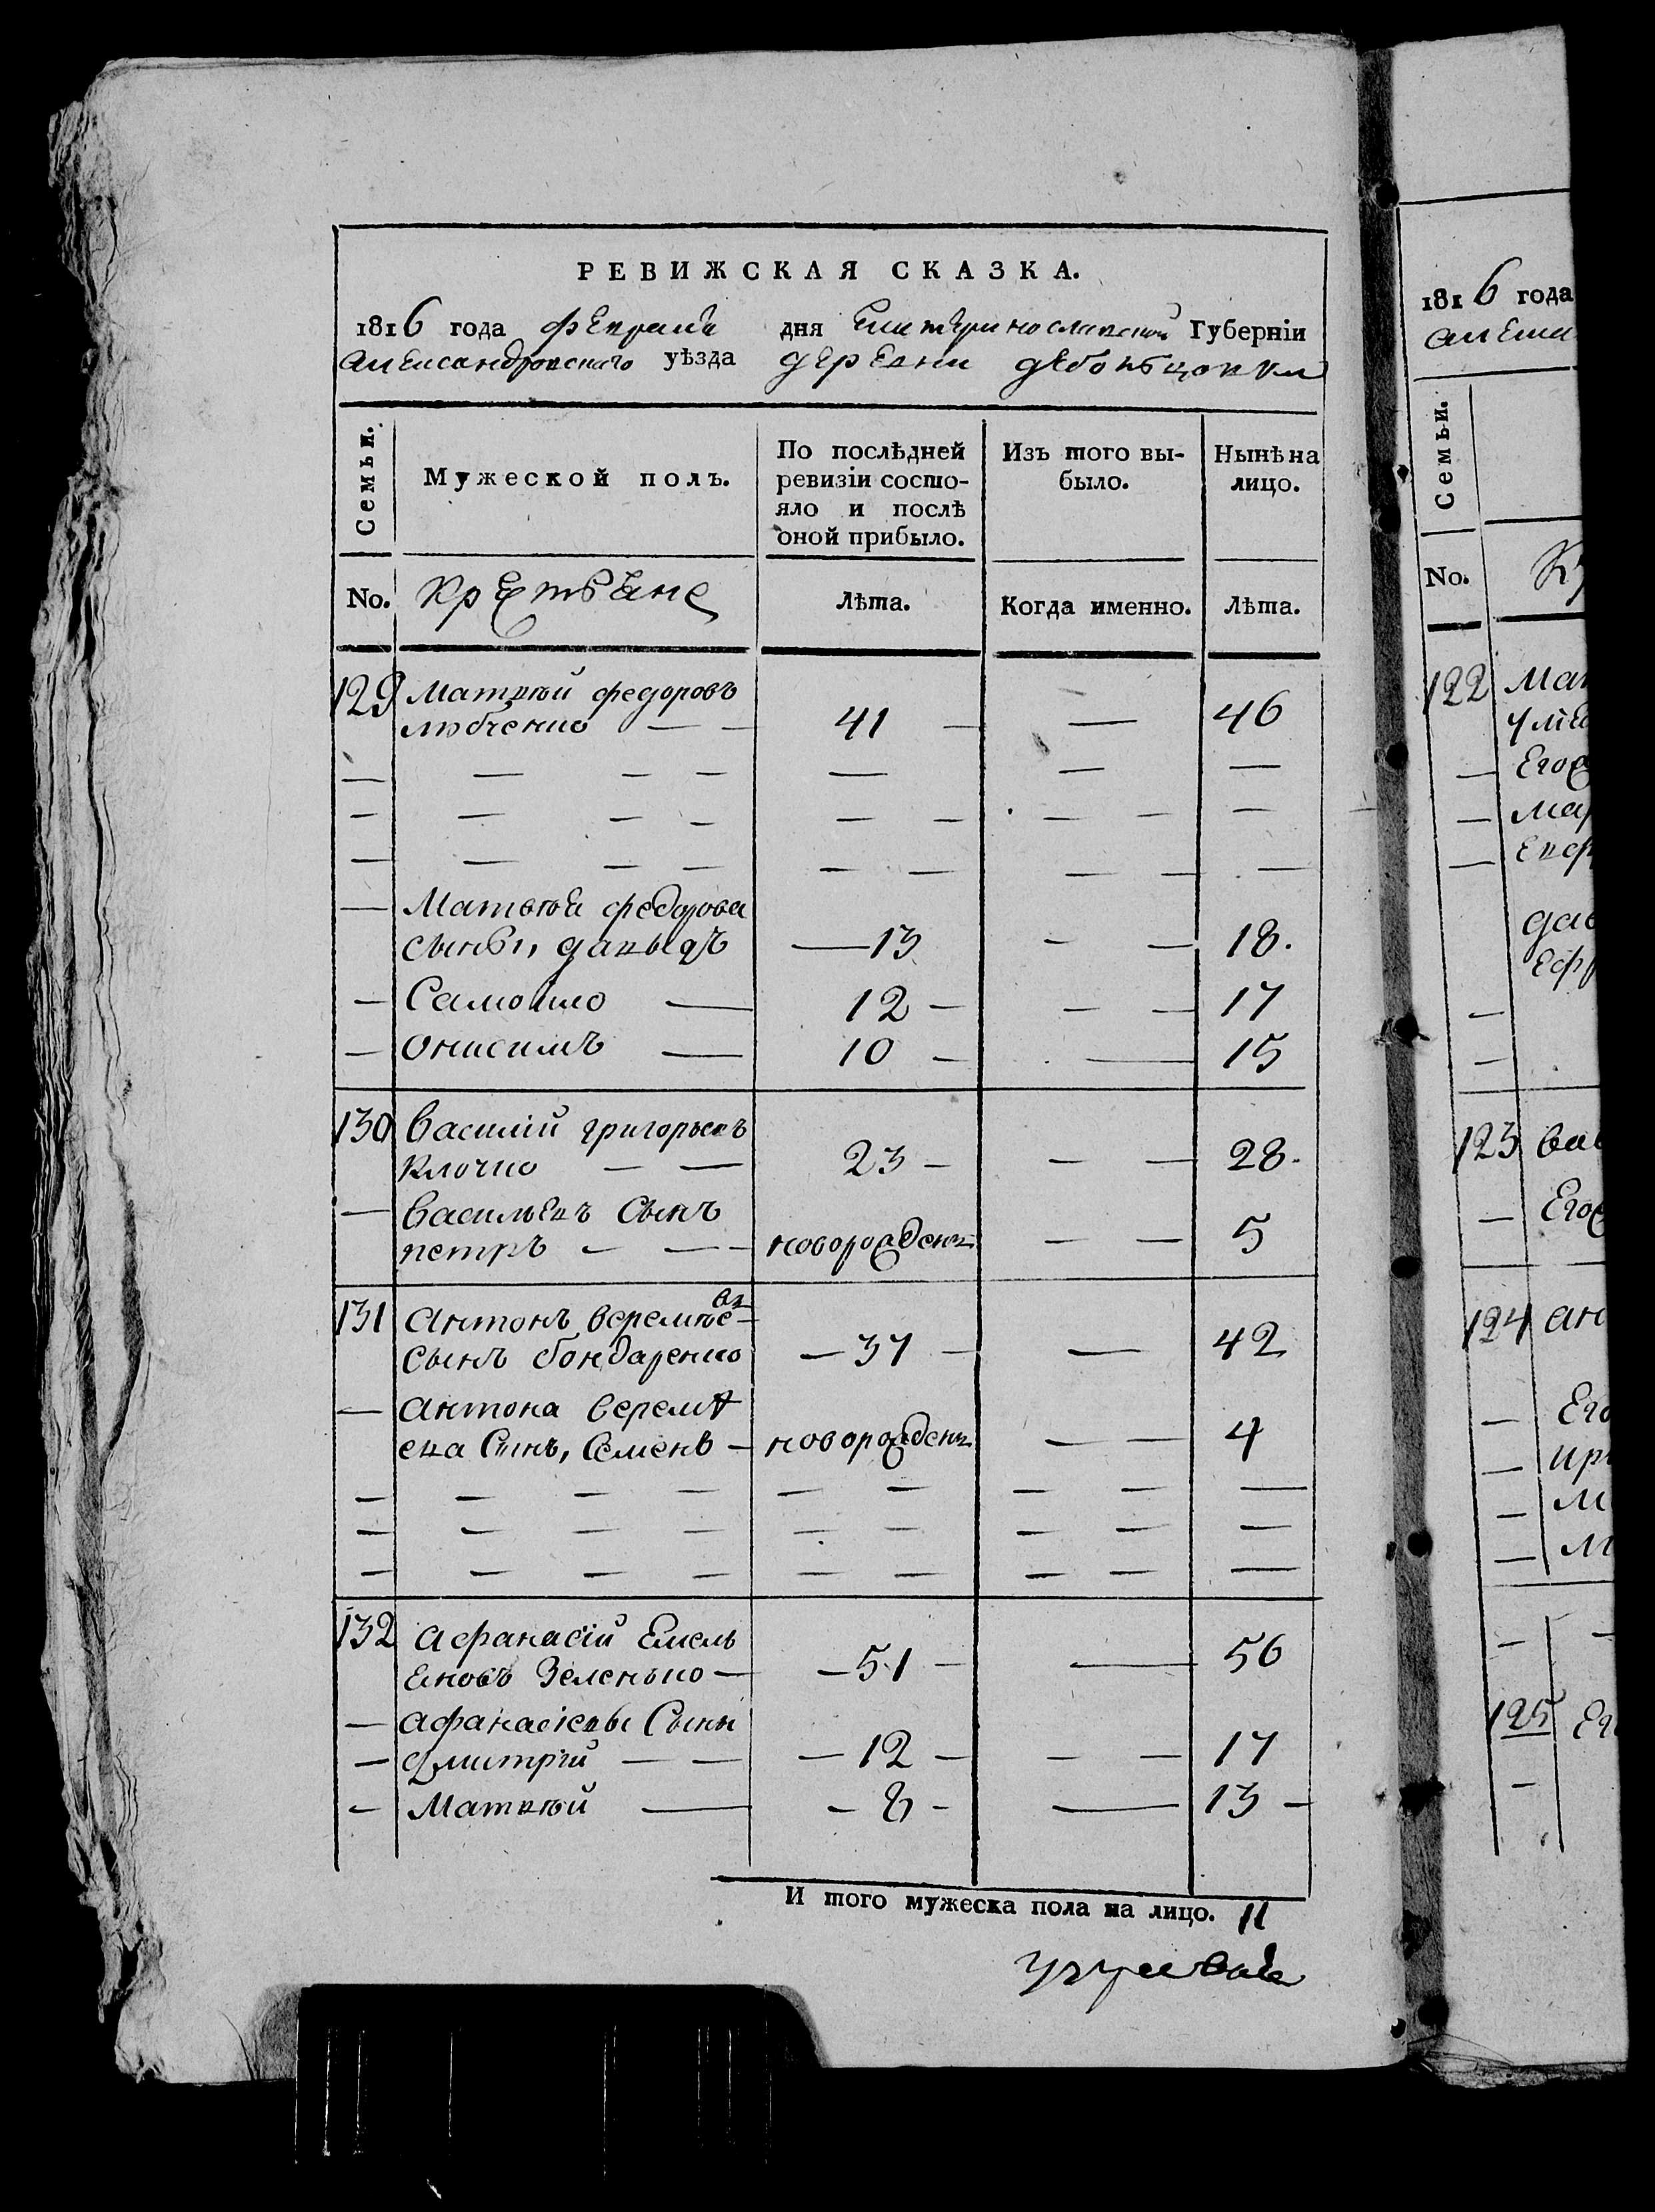 РЕВИЖСКАЯ СКАЗКА.
1816 года февраля дня Екатеринославской Губерніи
александровского уѣзда деревни
Семьи. Мужеской полъ. По послѣдней ревизіи состояло и послѣ оной прибыло. Изъ того выбыло. Нынѣ на лицо.
No. Лѣта. Когда именно. Лѣта.
129 Матвѣй федоровъ
любченко — — 41 — — 46
— — — — — — —
— — — — — — — — —
— — — — — — — — —
— Матвѣя федорова
сынъы, давыдъ — 13 — — 18.
— Самойло — 12 — — — 17
— онисимъ — 10 — — 15
130 Василій григорьевъ
клочко — — 23 — — — 28.
— Васильевъ Сынъ
петръ — — новорожденъ — — 5
131 антонъ веремѣевъ
сынъ бондаренко — 37 — — 42
— антона веремѣ
ева Сынъ, Семенъ — новорожденъ — — 4
— — — — — — — — —
— — — — — — — — —
— — — — — — — — —
132 афанасій Емель
яновъ Зеленько — — 51 — — 56
— афанасіевы Сыны
— дмитрій — — — 12 — — — 17
— Матвѣй — — 8 — — 13 —
И того мужеска пола на лицо. 11
1816 года
Семьи.
No.
122
123
124
125